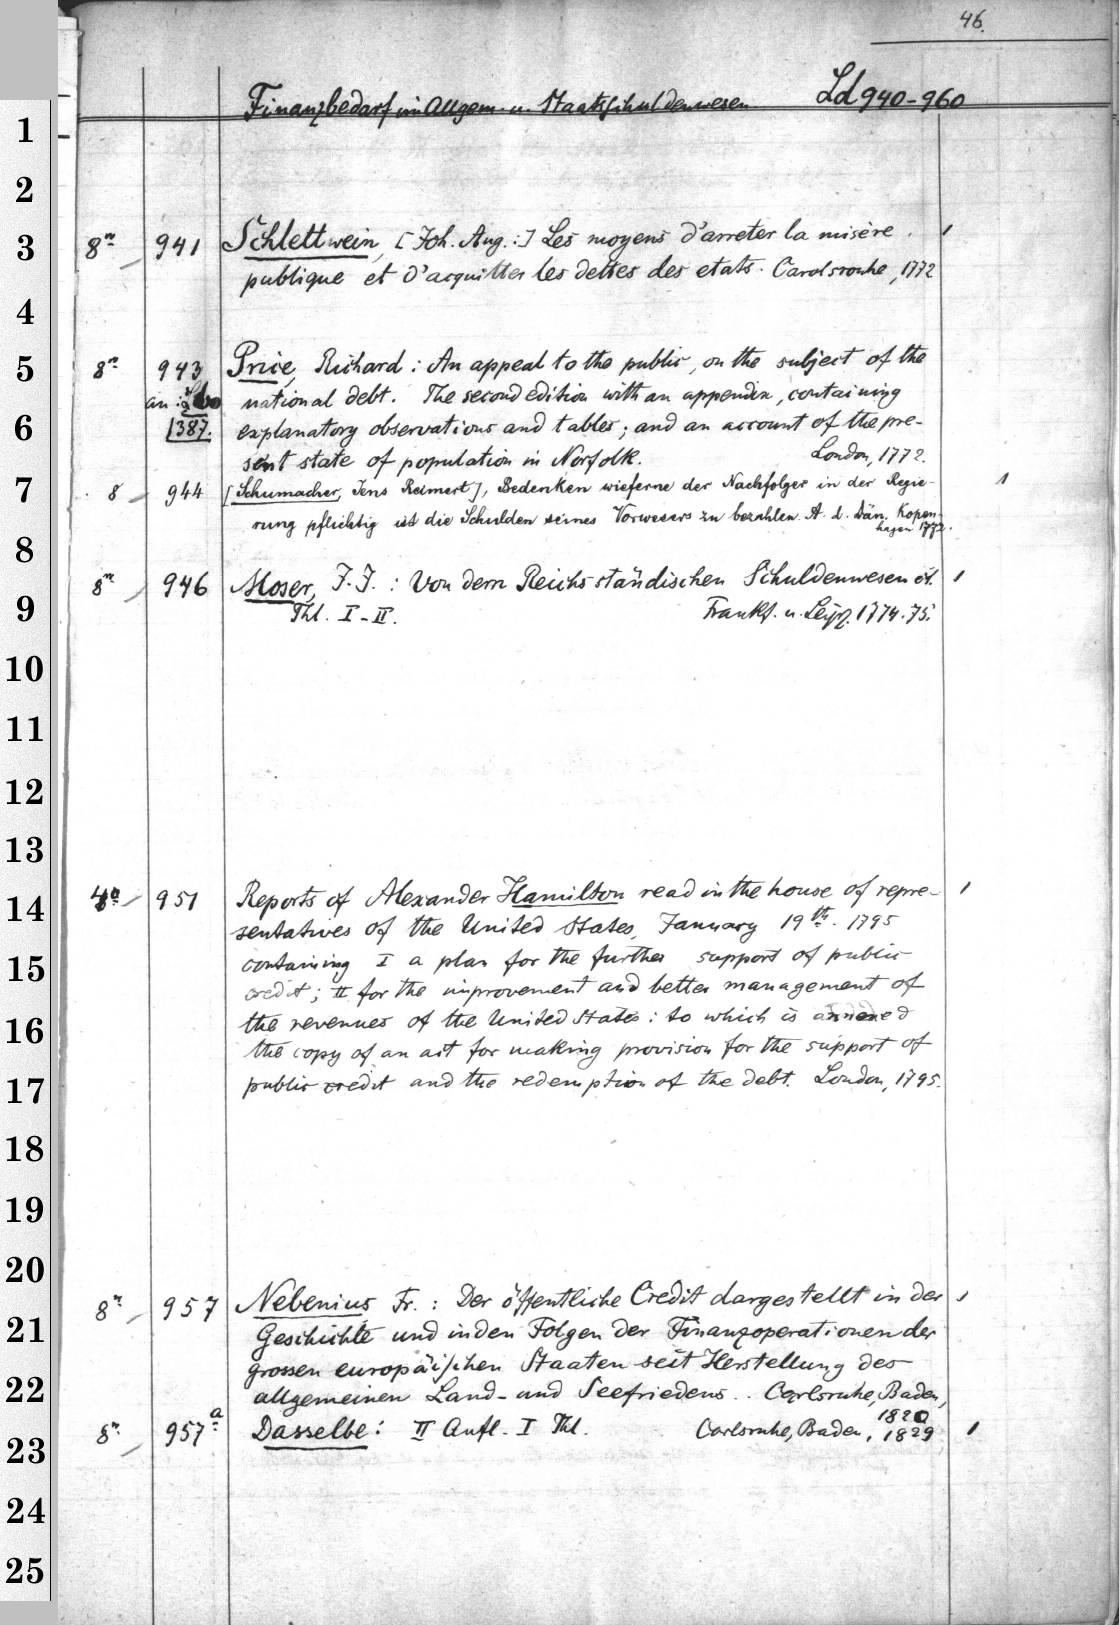 46.
Finanzbedarf im Allgem. u. Staatsschuldenwesen Ld 940-960
1
2
3
4
5
6
7
8
9
10
11
12
13
14
15
16
17
18
19
20
21
22
23
24
25
8º 941 Schlettwein, [Joh. Aug.:] Les moyens d'arreter la misère 1
publique et d'acquitter les dettes des etats. Carolsrouhe, 1772
8º 943 Price, Richard: An appeal to the public, on the subject of the
an: national debt. The second edition with an appendix, containing
1387. explanatory observations and tables; and an account of the pre-
sent state of population in Norfolk. London, 1772.
8 944 [Schumacher, Jens Reimert], Bedenken wieferne der Nachfolger in der Regie- 1
rung pflichtig ist die Schulden seines Vorwesers zu bezahlen. A. d. Dän. Kopen-
hagen 1772.
8º 946 Moser, J. J.: Von dem Reichsständischen Schuldenwesen 1
Thl. I-II. Frankf. u. Leipz. 1774.75.
4º 951 Reports of Alexander Hamilton read in the house of repre- 1
sentatives of the United States, January 19th. 1795
containing I a plan for the further support of public
credit; II for the improvement and better management of
the revenues of the United States: to which is annexed
the copy of an act for making provision for the support of
public credit and the redemption of the debt. London, 1795.
8º 957 Nebenius Fr.: Der öffentliche Credit dargestellt in der 1
Geschichte und in den Folgen der Finanzoperationen der
grossen europäischen Staaten seit Herstellung des
allgemeinen Land- und Seefriedens.. Carlsruhe, Baden,
1820
8º 957a Dasselbe: II Aufl. I Thl. Carlsruhe, Baden, 1829 1